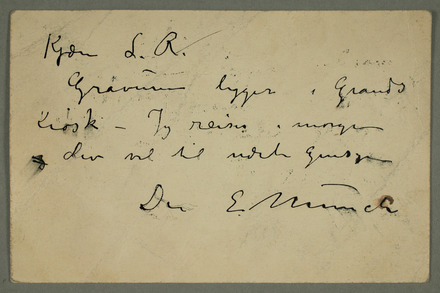 Kjære L. R.
Gravuren ligger i Grands
Kiosk – Jeg reiser i morgen
lev vel til næste
Din E Munch